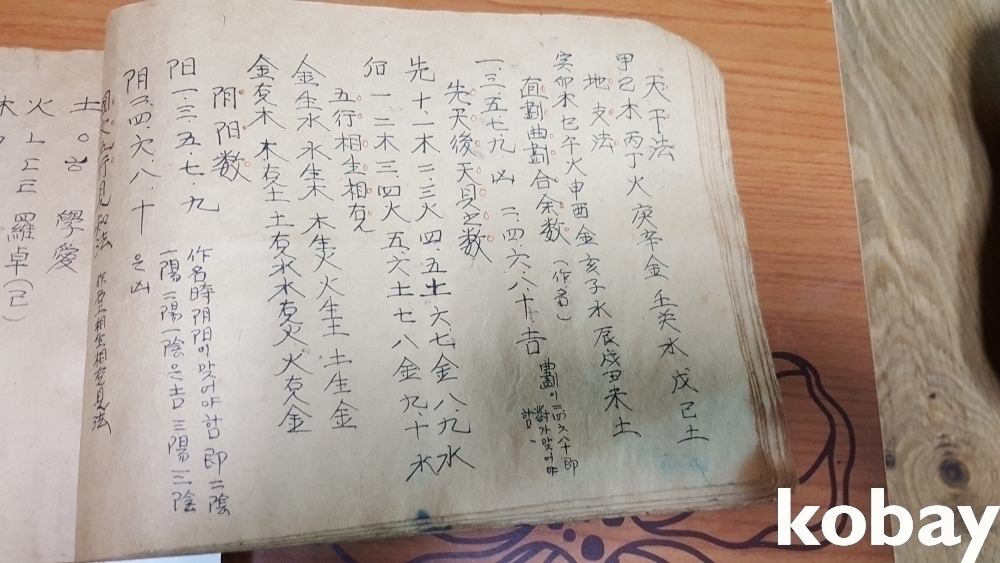 天干法
甲乙木 丙丁火 庚辛金 壬癸水 戊己土
地支法
寅卯木 巳午火 申酉金 亥子水 辰戌丑未土
直劃曲劃合余数 (作名)
一.三.五七.九.凶 二.四.六.八.十吉 曲劃이 二四六八十即
대가맞어야
함
先天後天貝之数
先 十.一木 二.三火 四.五土 六.七金 八.九水
后 一.二木 三.四火 五.六土 七.八金 九.十水
五行相生相克
金生水 水生木 木生火 火生土 土生金
金克木 木克土 土克水 水克火 火克金
阴阳数
阳 一.三.五.七.九 作名時阴阳이맞어야함 即 二陰
阴 二.四.六.八.十 一陽 二陽一陰은吉 三陽三陰
은凶
土 ㅇㅎ 學愛
火 ㄴㄷㄹ 羅卓(己)
kobay